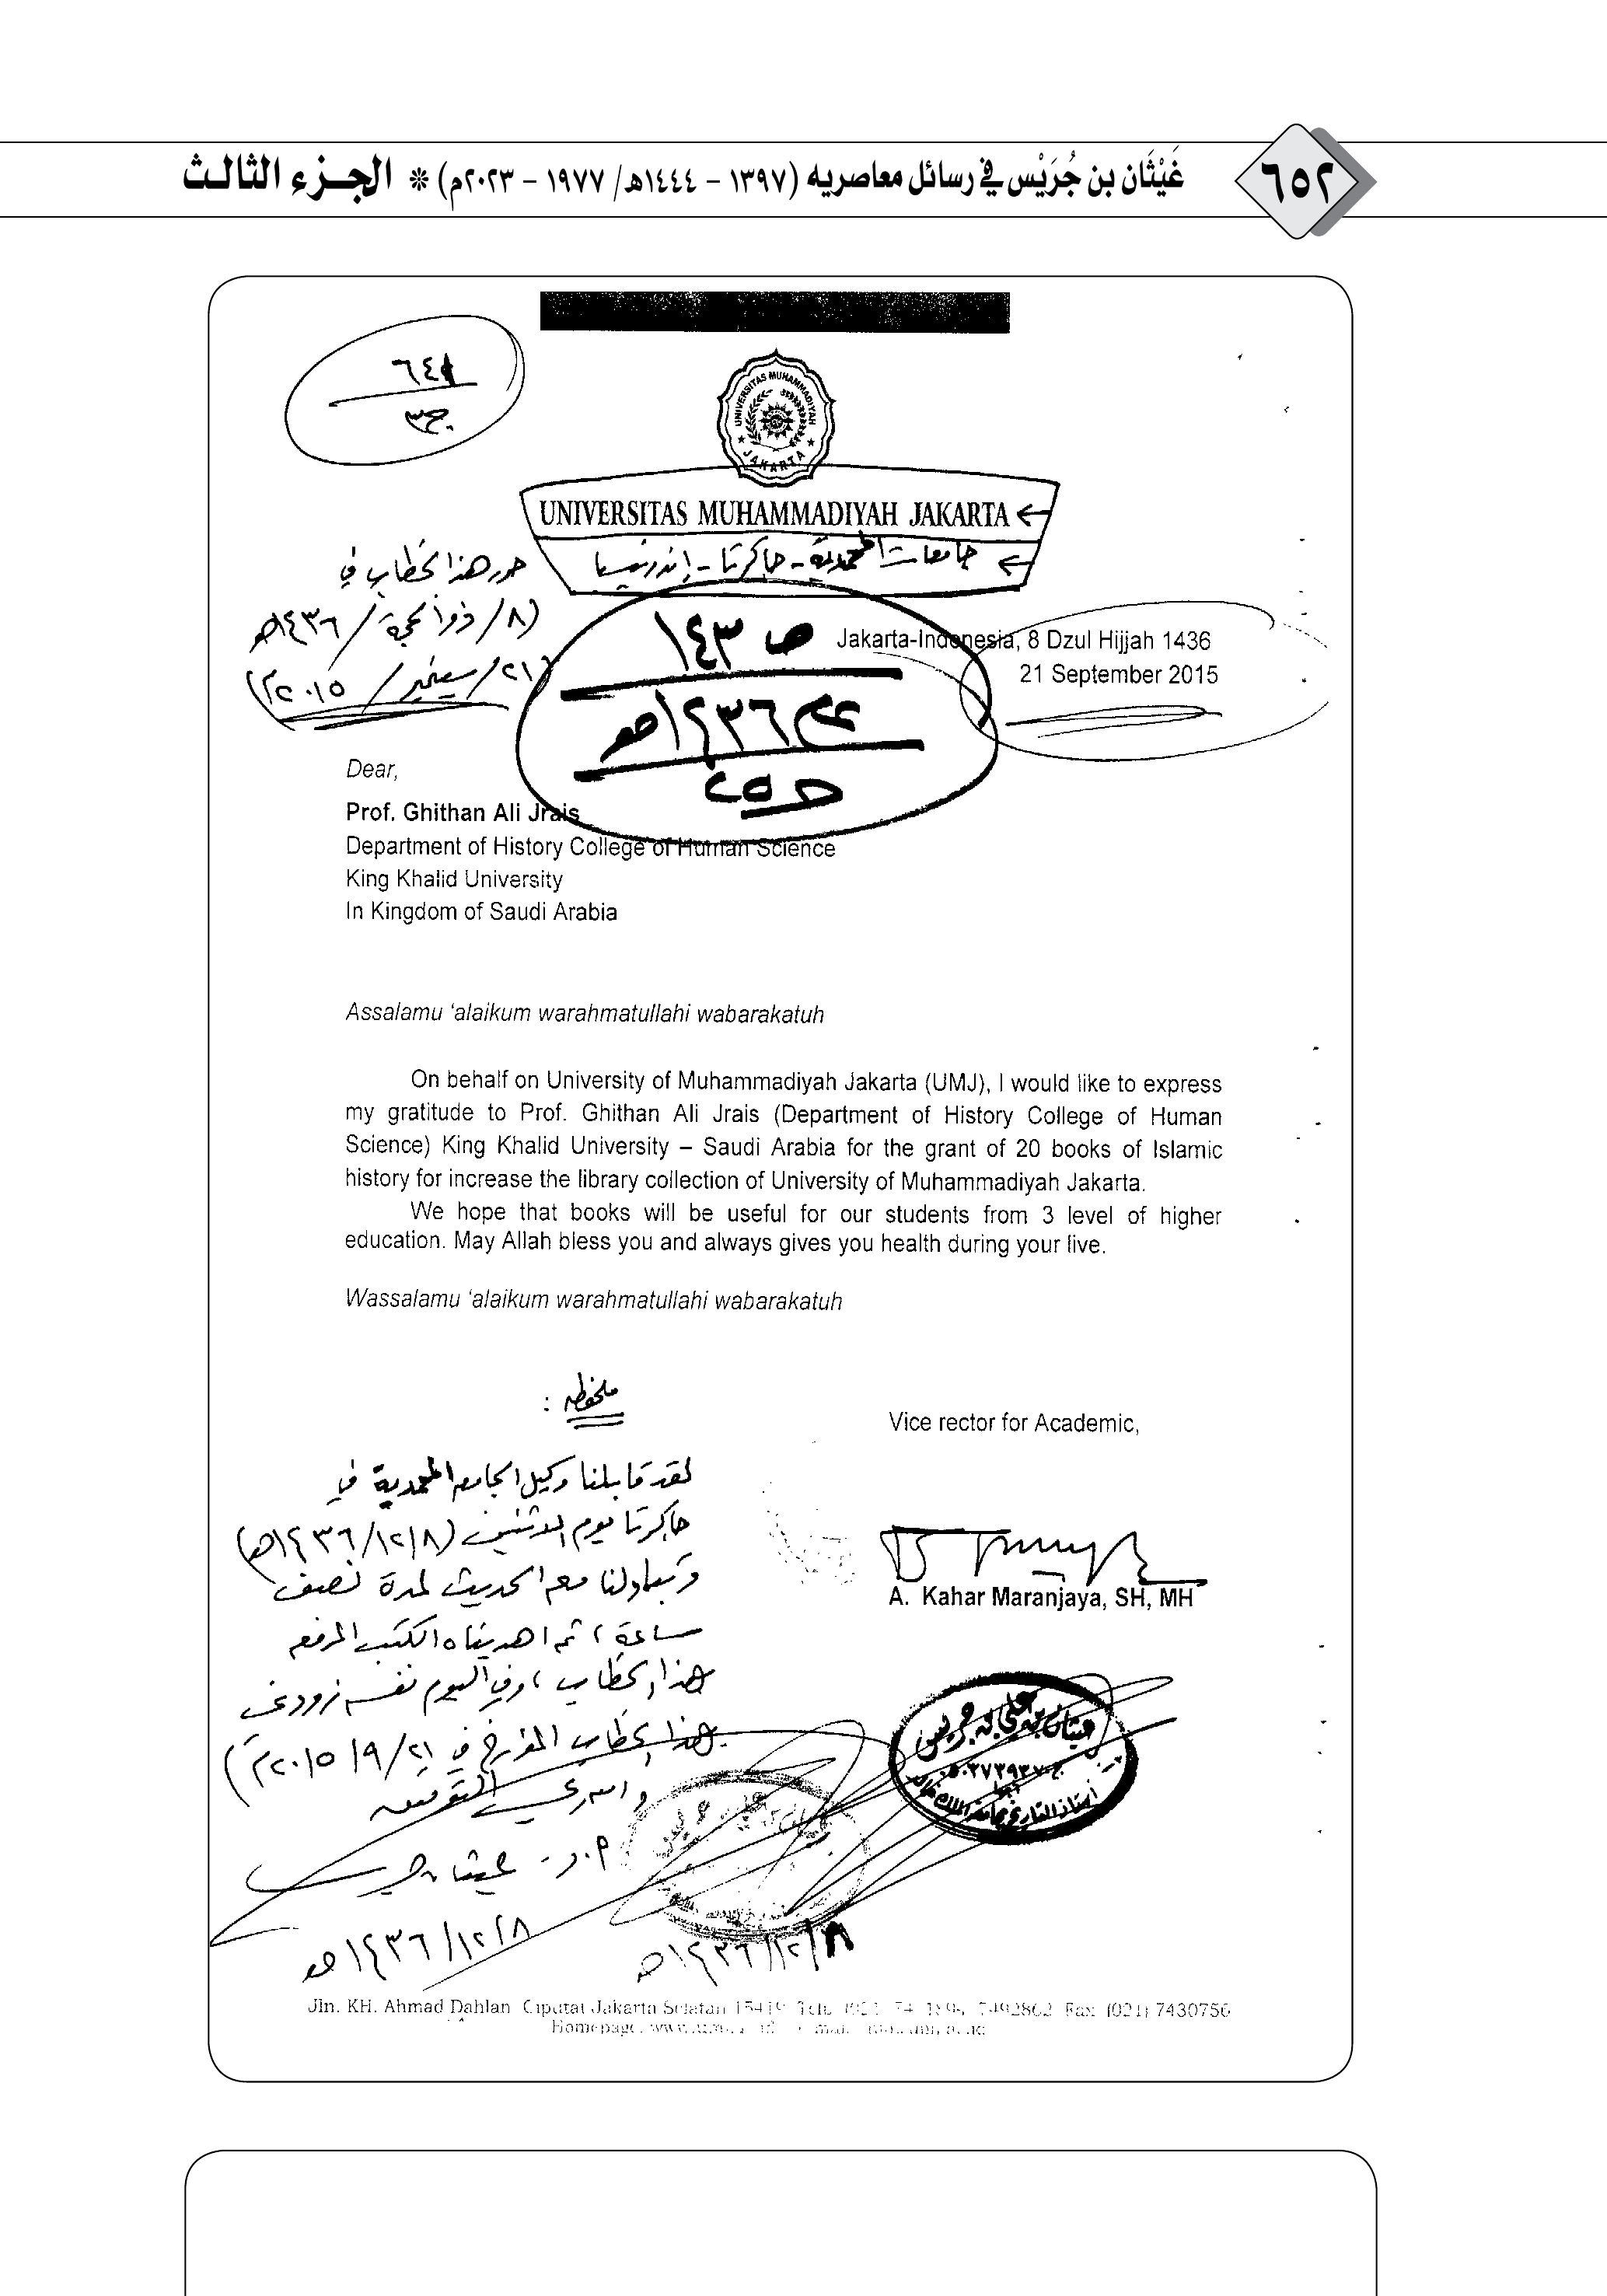 غَيْثَان بن جُرَيْس في رسائل معاصريه (١٣٩٧ – ١٤٤٤هـ/ ١٩٧٧ – ٢٠٢٣م) * الجزء الثالث
٦٥٢
ج٣
UNIVERSITAS MUHAMMADIYAH
JAKARTA
UNIVERSITAS MUHAMMADIYAH JAKARTA
جامعات المحمدية - جاكرتا - إندونيسيا
حرر هذا الخطاب في
(٨/ ذو الحجة / ١٤٣٦هـ
(٢١/ سبتمبر / ٢٠١٥م)
ص ١٤٣
١٤٣٦هـ
Jakarta-Indonesia, 8 Dzul Hijjah 1436
21 September 2015
Dear,
Prof. Ghithan Ali Jrais
Department of History College of Human Science
King Khalid University
In Kingdom of Saudi Arabia
Assalamu ‘alaikum warahmatullahi wabarakatuh
On behalf on University of Muhammadiyah Jakarta (UMJ), I would like to express
my gratitude to Prof. Ghithan Ali Jrais (Department of History College of Human
Science) King Khalid University – Saudi Arabia for the grant of 20 books of Islamic
history for increase the library collection of University of Muhammadiyah Jakarta.
We hope that books will be useful for our students from 3 level of higher
education. May Allah bless you and always gives you health during your live.
Wassalamu ‘alaikum warahmatullahi wabarakatuh
Vice rector for Academic,
A. Kahar Maranjaya, SH, MH
ملحوظة :
لقد قابلنا وكيل الجامعة المحمدية في
جاكرتا يوم الاثنين (١٤٣٦/١٢/٨هـ)
وتبادلنا معه الحديث لمدة نصف
ساعة، ثم اهديناه الكتب المرفقة
هذا الخطاب، وفي اليوم نفسه زودني
هذا الخطاب المؤرخ في ٢١/ ٩/ ٢٠١٥م)
التوفيق
أ.د. غيثان جريس
١٤٣٦/١٢/٨هـ
١٤٣٦/١٢/٨هـ
غيثان بن علي بن جريس
أستاذ التاريخ بجامعة الملك خالد
Jln. KH. Ahmad Dahlan Ciputat Jakarta Selatan 15419 7492862 Fax. (021) 7430756
Homepage.